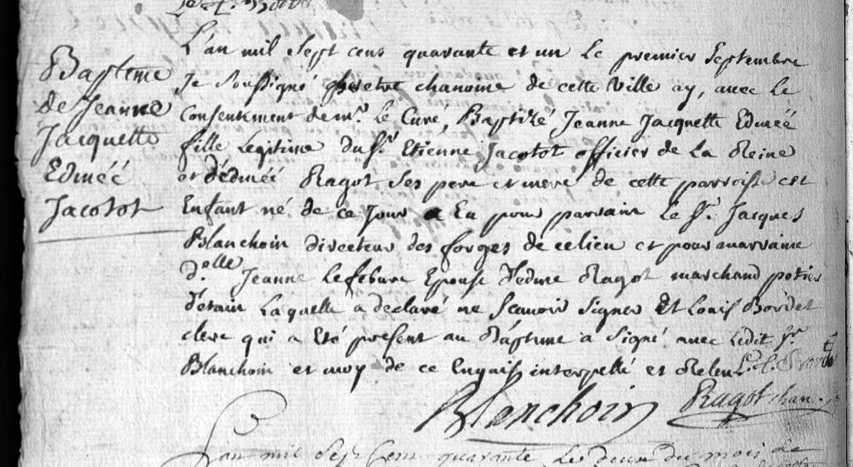 Baptême
de Jeanne
Jacquette
Edméé
Jacotot
L'an mil Sept cens quarante et un Le premier Septembre
Je Soussigné prêtre chanoine de cette Ville ay, avec Le
Consentement de mr. Le Curé, Baptizé Jeanne Jacquette Edméé
fille Legitime du Sr. Etienne Jacotot officier de La Reine
et d'édméé Ragot Ses pere et mere de cette paroisse est
Enfant né de ce Jour a Eu pour parrain Le Sr. Jacques
Blanchoin directeur des forges de ce lieu et pour marraine
Delle Jeanne Lefebure Epouse d'edme Ragot marchand potier
d'étain Laquelle a declaré ne Scavoir Signer Et Louis Bordet
clerc qui a Eté present au Baptême a Signé avec Ledit Sr.
Blanchoin et moy de ce Enquis interpellé et
Blanchoin Ragot chan.
L'an mil Sept Cens quarante Le deux du mois de